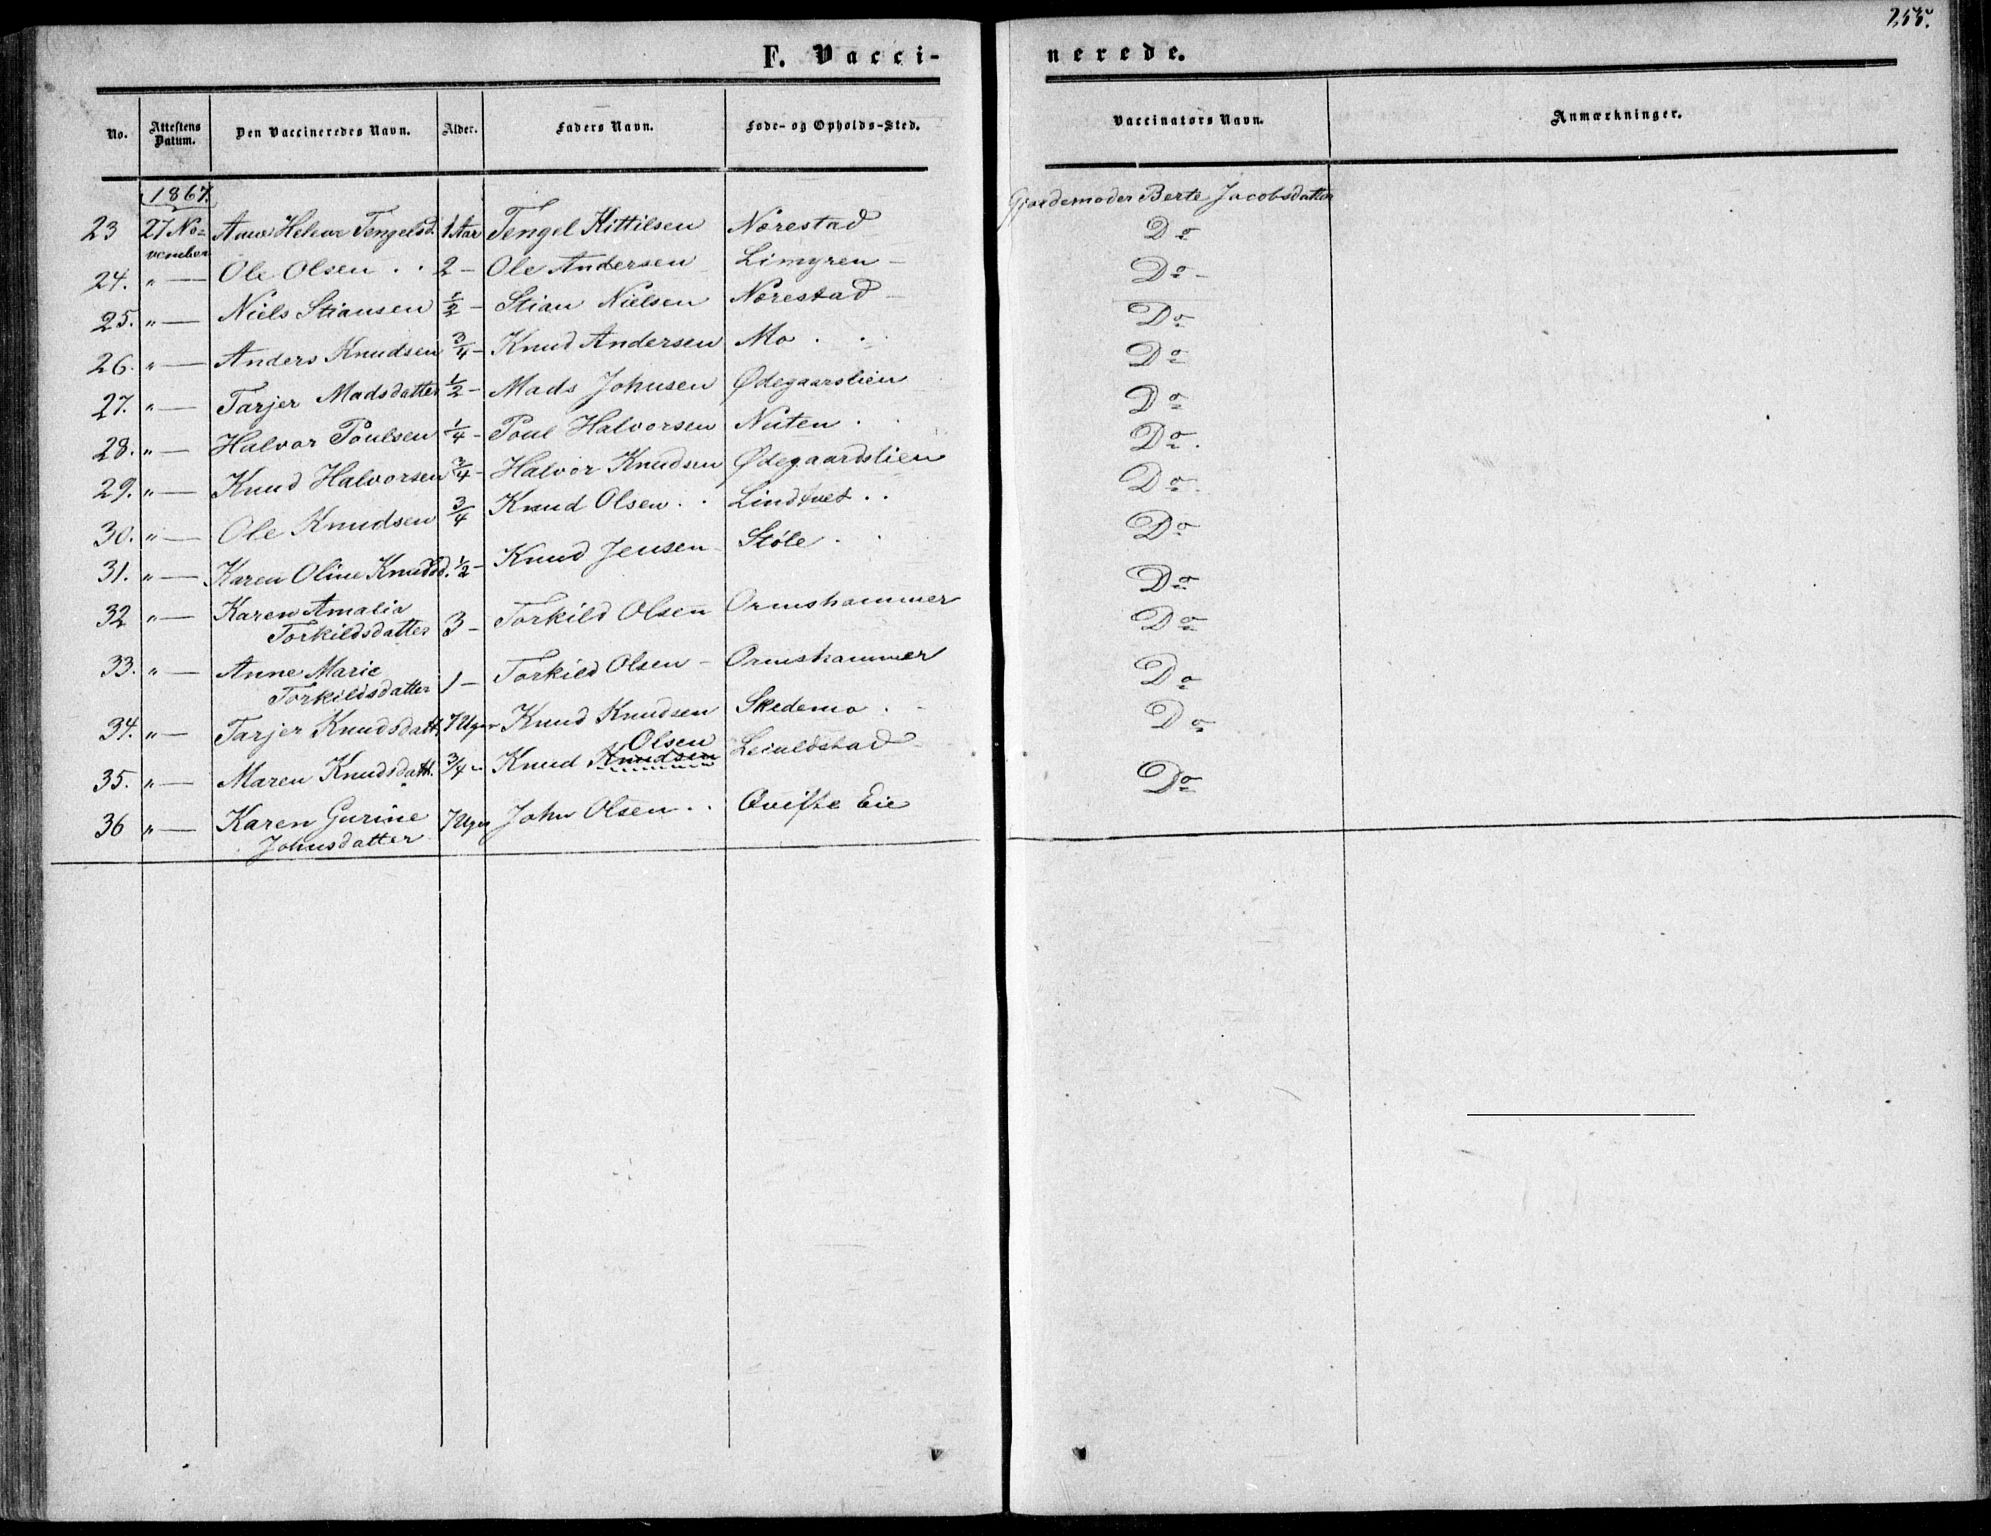 255.
F. Vacci-
nerede.
No.
Attestens Datum.
Den Vaccineredes Navn.
Alder.
Faders Navn.
Føde- og Opholds-Sted.
Vaccinators Navn.
Anmærkninger.
1867.
Gjordemoder Berte Jacobsdatter
23 27 No- Anne Helene Tengelsd. 1 Aar Tengel Kittilsen Nørestad Do
vember
24. " — Ole Olsen . . 2 – Ole Andersen Limyren – Do –
25. " — Niels Stiansen 1/2 – Stian Nielsen Nørestad – Do
26. " — Anders Knudsen 3/4 – Knud Andersen Mo . . Do
27. " — Tarjer Madsdatter 1/2 – Mads Johnsen Ødegaarslien Do
28. " — Halvor Poulsen 1/4 – Poul Halvorsen Nuten . . Do.
29. " — Knud Halvorsen 3/4 – Halvor Knudsen Ødegaardslien Do.
30. " — Ole Knudsen 3/4 Knud Olsen . . Lindtvet . . Do
31. " — Karen Oline Knudsd. 1/2 – Knud Jensen – Støle . . Do
32 " — Karen Amalia
Torkildsdatter 3 – Torkild Olsen Ormshammer Do
33. " — Anne Marie
Torkildsdatter 1 – Torkild Olsen – Ormshammer Do
34. " — Tarjer Knudsdatt. 7 Uger Knud Knudsen Skedemo . – Do
Olsen
35. " — Maren Knudsdatt. 3/4 " Knud Knudsen Do
36 " — Karen Gurine 7 Uger John Olsen . . Qvifte Eie
Johnsdatter